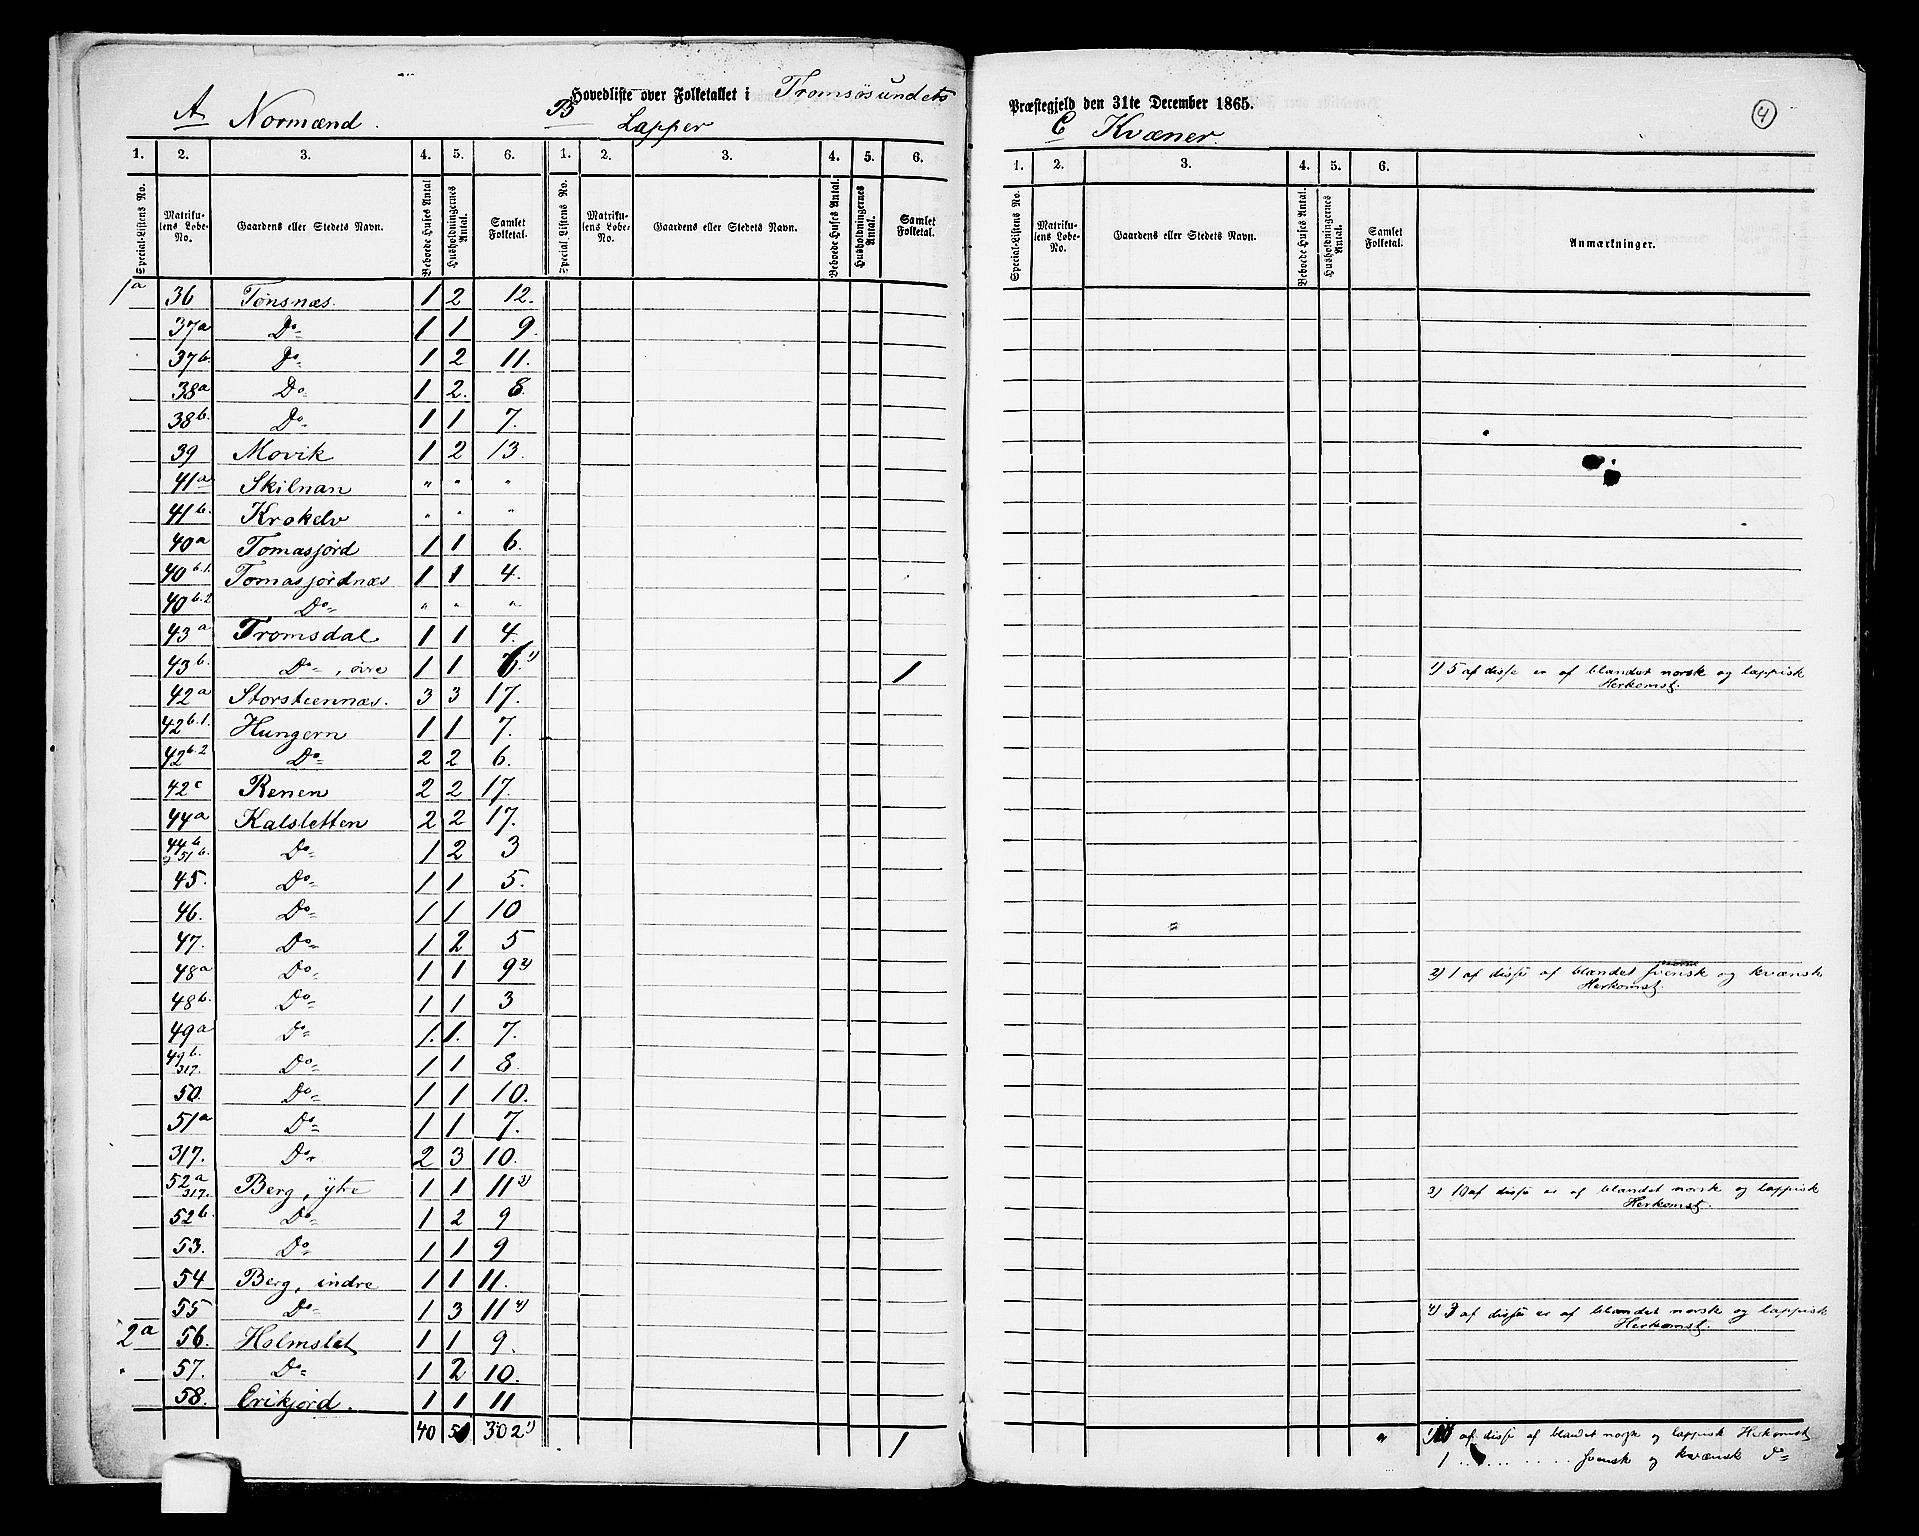 Hovedliste over Folketallet i Tromsøsundets Præstegjeld den 31te December 1865.
4
A Normænd. B Lapper C Kvæner.
1. 2. 3. 4. 5. 6. 1. 2. 3. 4. 5. 6. 1. 2. 3. 4. 5. 6.
Special-Listens No. Matrikulens Løbe-No. Gaardens eller Stedets Navn. Beboede Huses Antal Husholdningernes Antal. Samlet Folketal. Special-Listens No. Matrikulens Løbe-No. Gaardens eller Stedets Navn. Beboede Huses Antal. Husholdningernes Antal. Samlet Folketal. Special-Listens No. Matrikulens Løbe-No. Gaardens eller Stedets Navn. Beboede Huses Antal. Husholdningernes Antal. Samlet Folketal. Anmærkninger.
1a 36 Tønsnæs. 1 2 12.
37a Do 1 1 9.
37b. Do 1 2 11.
38a Do 1 2. 8.
38b. Do 1 1 7.
39 Movik 1 2 13.
41a Skilnan " " "
41b. Krokelv " " "
40a Tomasjord 1 1 6.
40b.1. Tomasjordnæs 1 1 4.
40b.2 Do " " "
43a Tromsdal 1 1 4.
43b. Do, øvre 1 1 1) 1 1) 5 af disse er af blandet norsk og lappisk Herkomst.
42a Storsteennæs. 3 3 17.
42b.1. Hungern 1 1 7.
42b.2 Do 2 2 6.
42c Renen 2 2 17.
44a Kalsletten 2 2 17.
44b 51b. Do 1 2 3
45. Do 1 1 5.
46. Do 1 1 10
47. Do 1 2 5
48a Do 1 1 9 2) 2) 1 af disse af blandet svensk og kvænsk Herkomst.
48b. Do 1 1 3
49a Do 1. 1. 7.
49b. 317. Do 1 1 8.
50. Do 1 1 10.
51a Do 1 1 7.
317. Do 2 3 10.
52a 317. Berg, ytre 1 1 11 3) 3) 10 af disse er af blandet norsk og lappisk Herkomst.
52b. Do 1 2 9
53. Do 1 1 9
54 Berg, indre 1 1 11.
55 Do 1 3 11 4) 4) 3 af disse er af blandet norsk og lappisk Herkomst.
2a 56. Holmslet 1 1 9.
57. Do 1 2 10.
58. Erikjord. 1 1 11
40 302 1) 1 " 1) af disse af blandet norsk og lappisk Herkomst
1 . . . . . . . . svensk og kvænsk Do